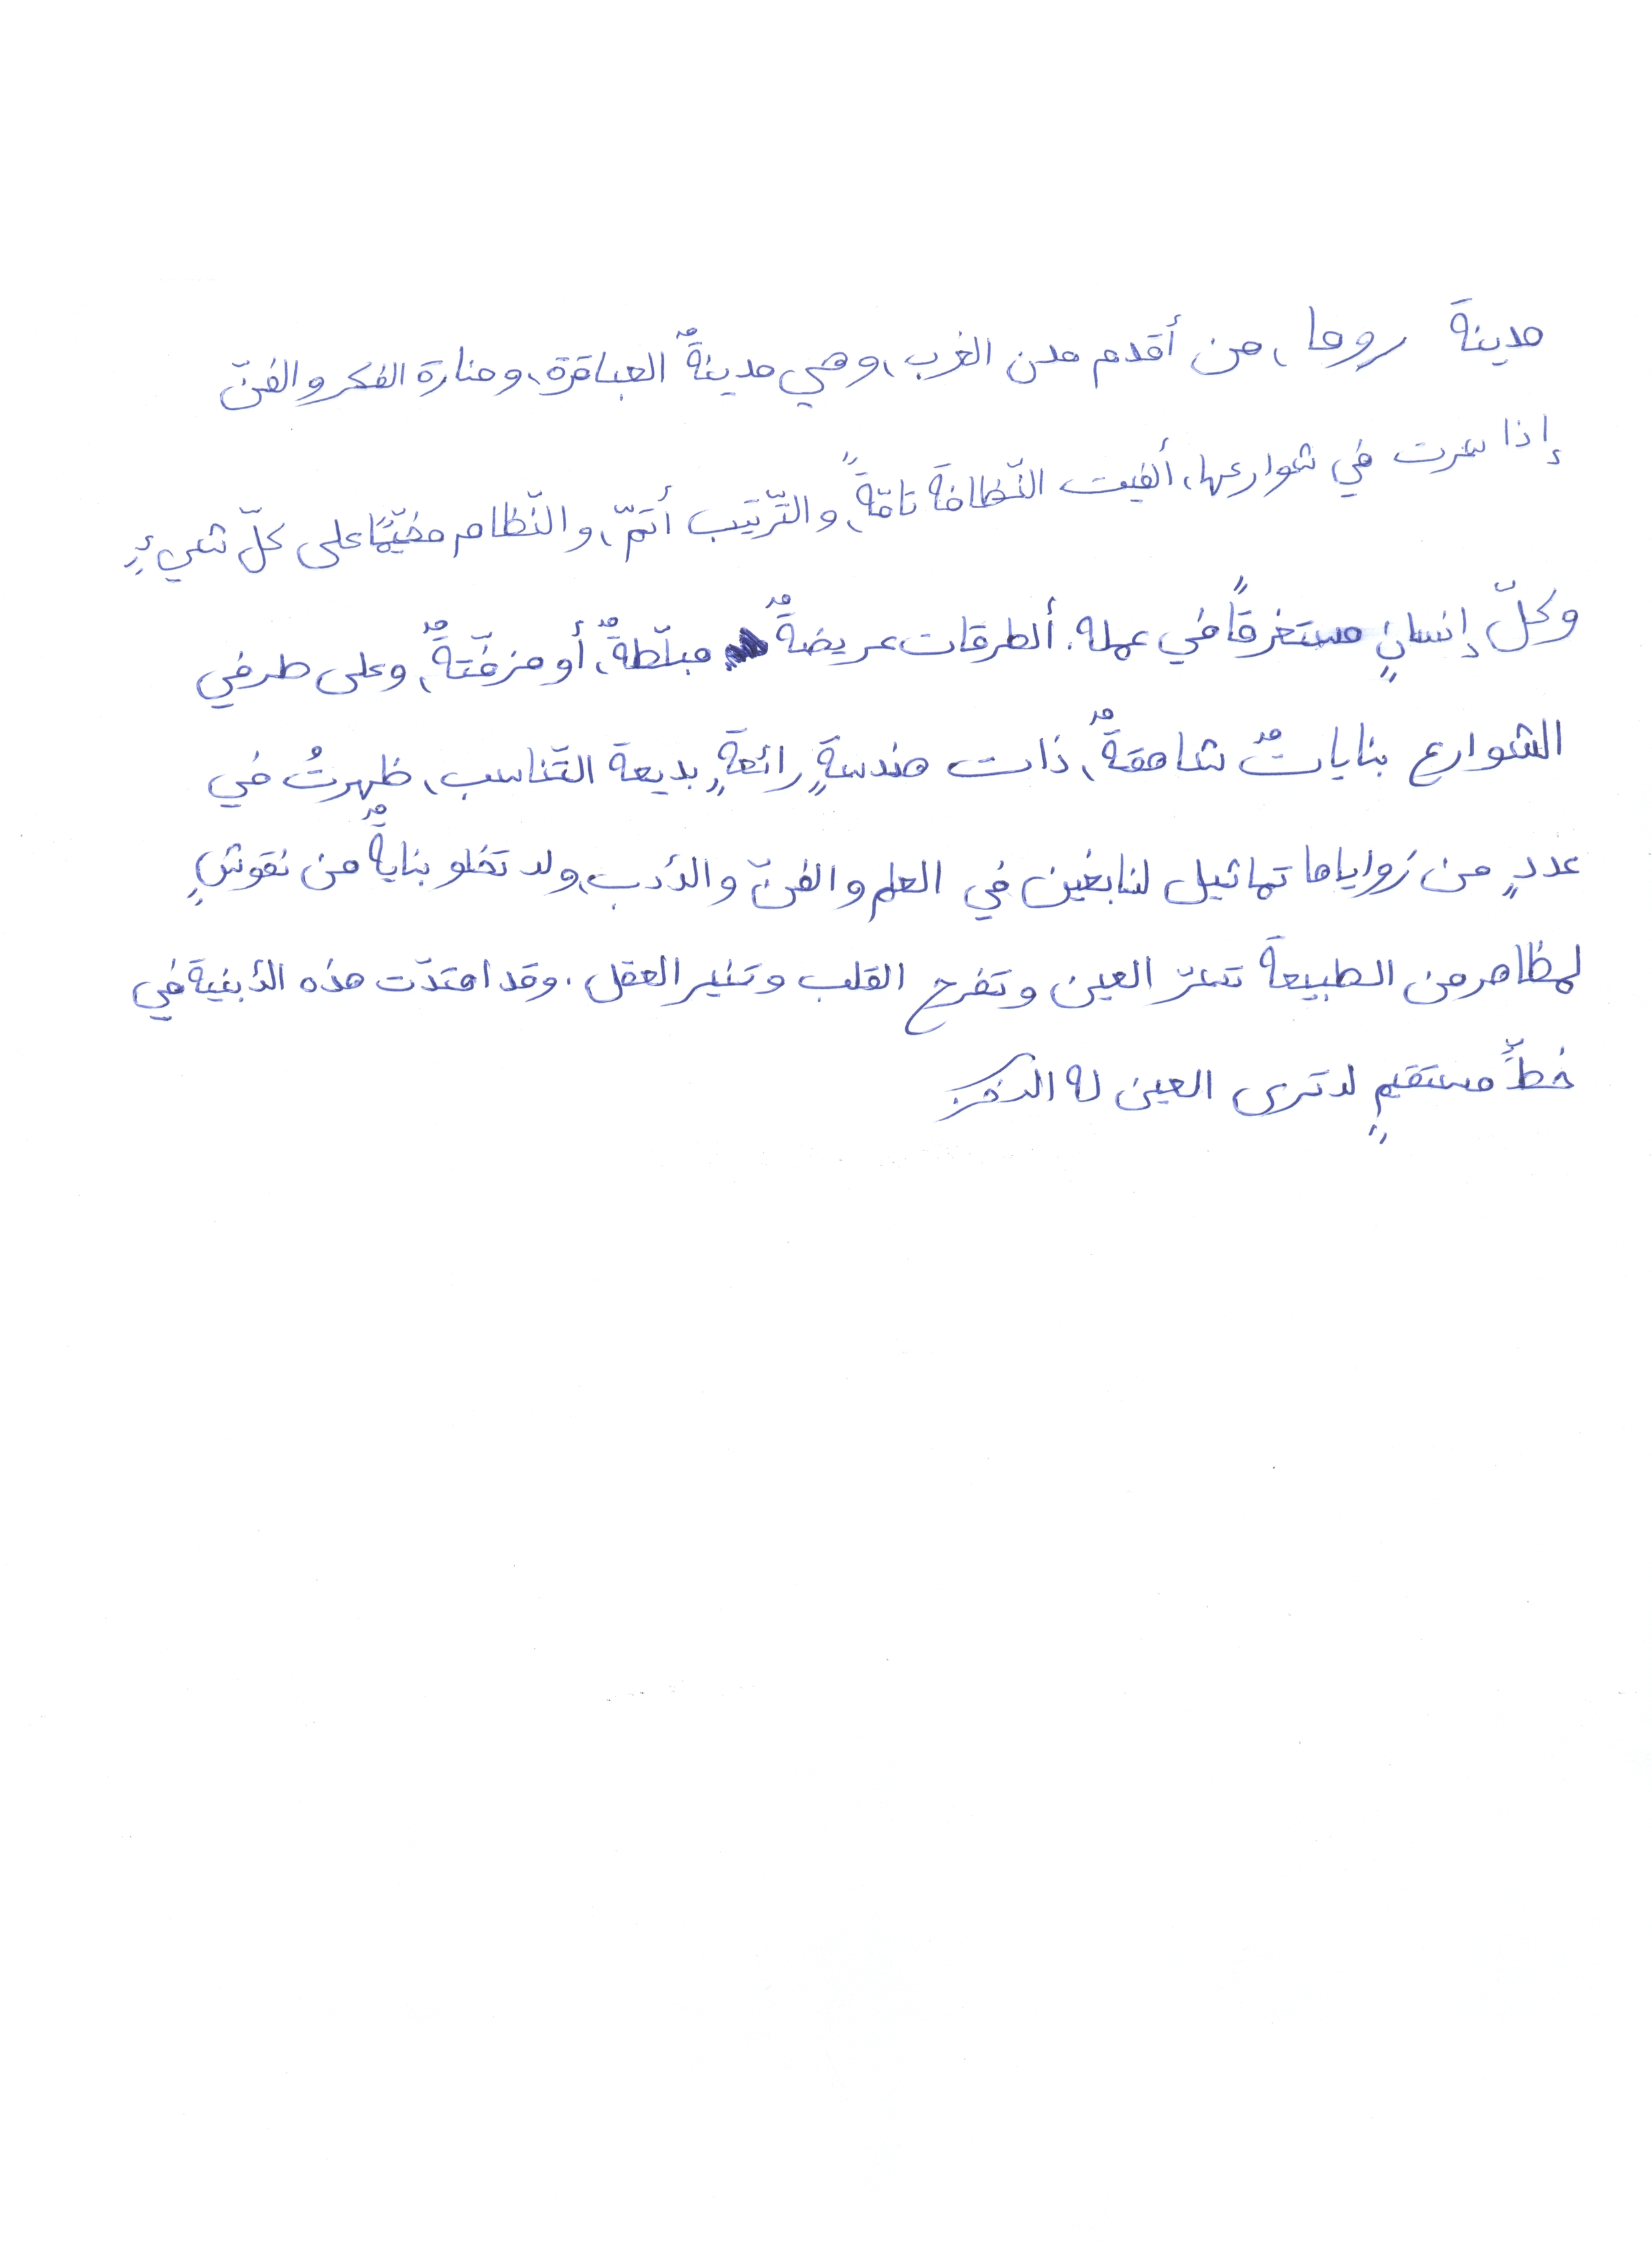 مدينة روما، من أقدم مدن الغرب، وهي مدينةٌ العباقرة، ومنارة الفكر والفنّ
إذا سرت في شوارعها، ألفيت النّظافة تامّةً، والتّرتيب أتمّ، والنّظام مخيّمًا على كلّ شيءٍ
وكلّ إنسانٍ مستغرقًا في عمله. ألطرقات عريضةٌ مبلّطةٌ، أو مزفّتةٌ، وعلى طرفي
الشوارع بناياتٌ شاهقةٌ، ذات هندسةٍ رائعةٍ بديعة التّناسب، ظهرتُ في
عددٍ من زواياها تماثيل لنابغين في العلم والفنّ والأدب، ولا تخلو بنايةٌ من نقوشٍ
لمظاهر من الطبيعة تسرّ العين وتفرح القلب وتنير العقل. وقد امتدّت هذه الأبنية في
خطٍّ مستقيمٍ لا ترى العين له